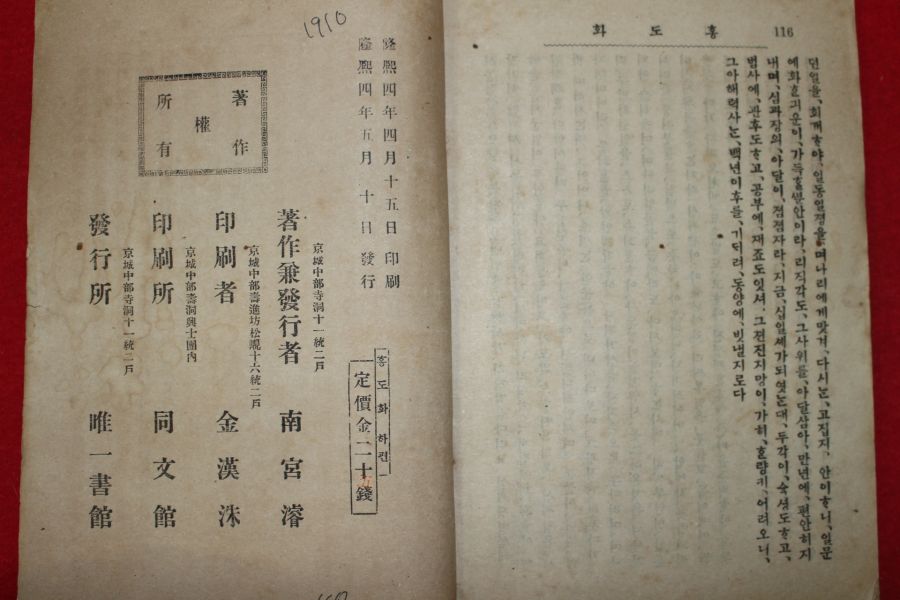 116
홍도화
던일을、회개ᄒᆞ야、일동일졍을、며나리에게맛겨、다시ᄂᆞᆫ、고집지、안이ᄒᆞ니、일문
예화ᄒᆞᆫ긔운이、가득ᄒᆞᆫ분안이라、리직각도、그사위를、아달삼아、만년에、편안히지
내며、심과장의、아달이、졈졈자라、지금、십일셰가되엿ᄂᆞᆫ대、두각이、슉셩도ᄒᆞ고、
범사에、관후도ᄒᆞ고、공부에、재죠도잇셔、그젼진지망이、가히、ᄒᆞᆫ량키、어려오니、
그아해력사ᄂᆞᆫ、백년이후를、기ᄃᆞ려、동양에、빗낼지로다
1910
隆熙四年四月十五日 印刷
隆熙四年五月十日 發行
著作權所有
홍도화하편
定價金二十錢
京城中部寺洞十一統二戶
著作兼發行者 南宮濬
京城中部壽進坊松峴十六統二戶
印刷者 金漢洙
京城中部壽洞興士團內
印刷所 同文館
京城中部寺洞十一統二戶
發行所 唯一書館